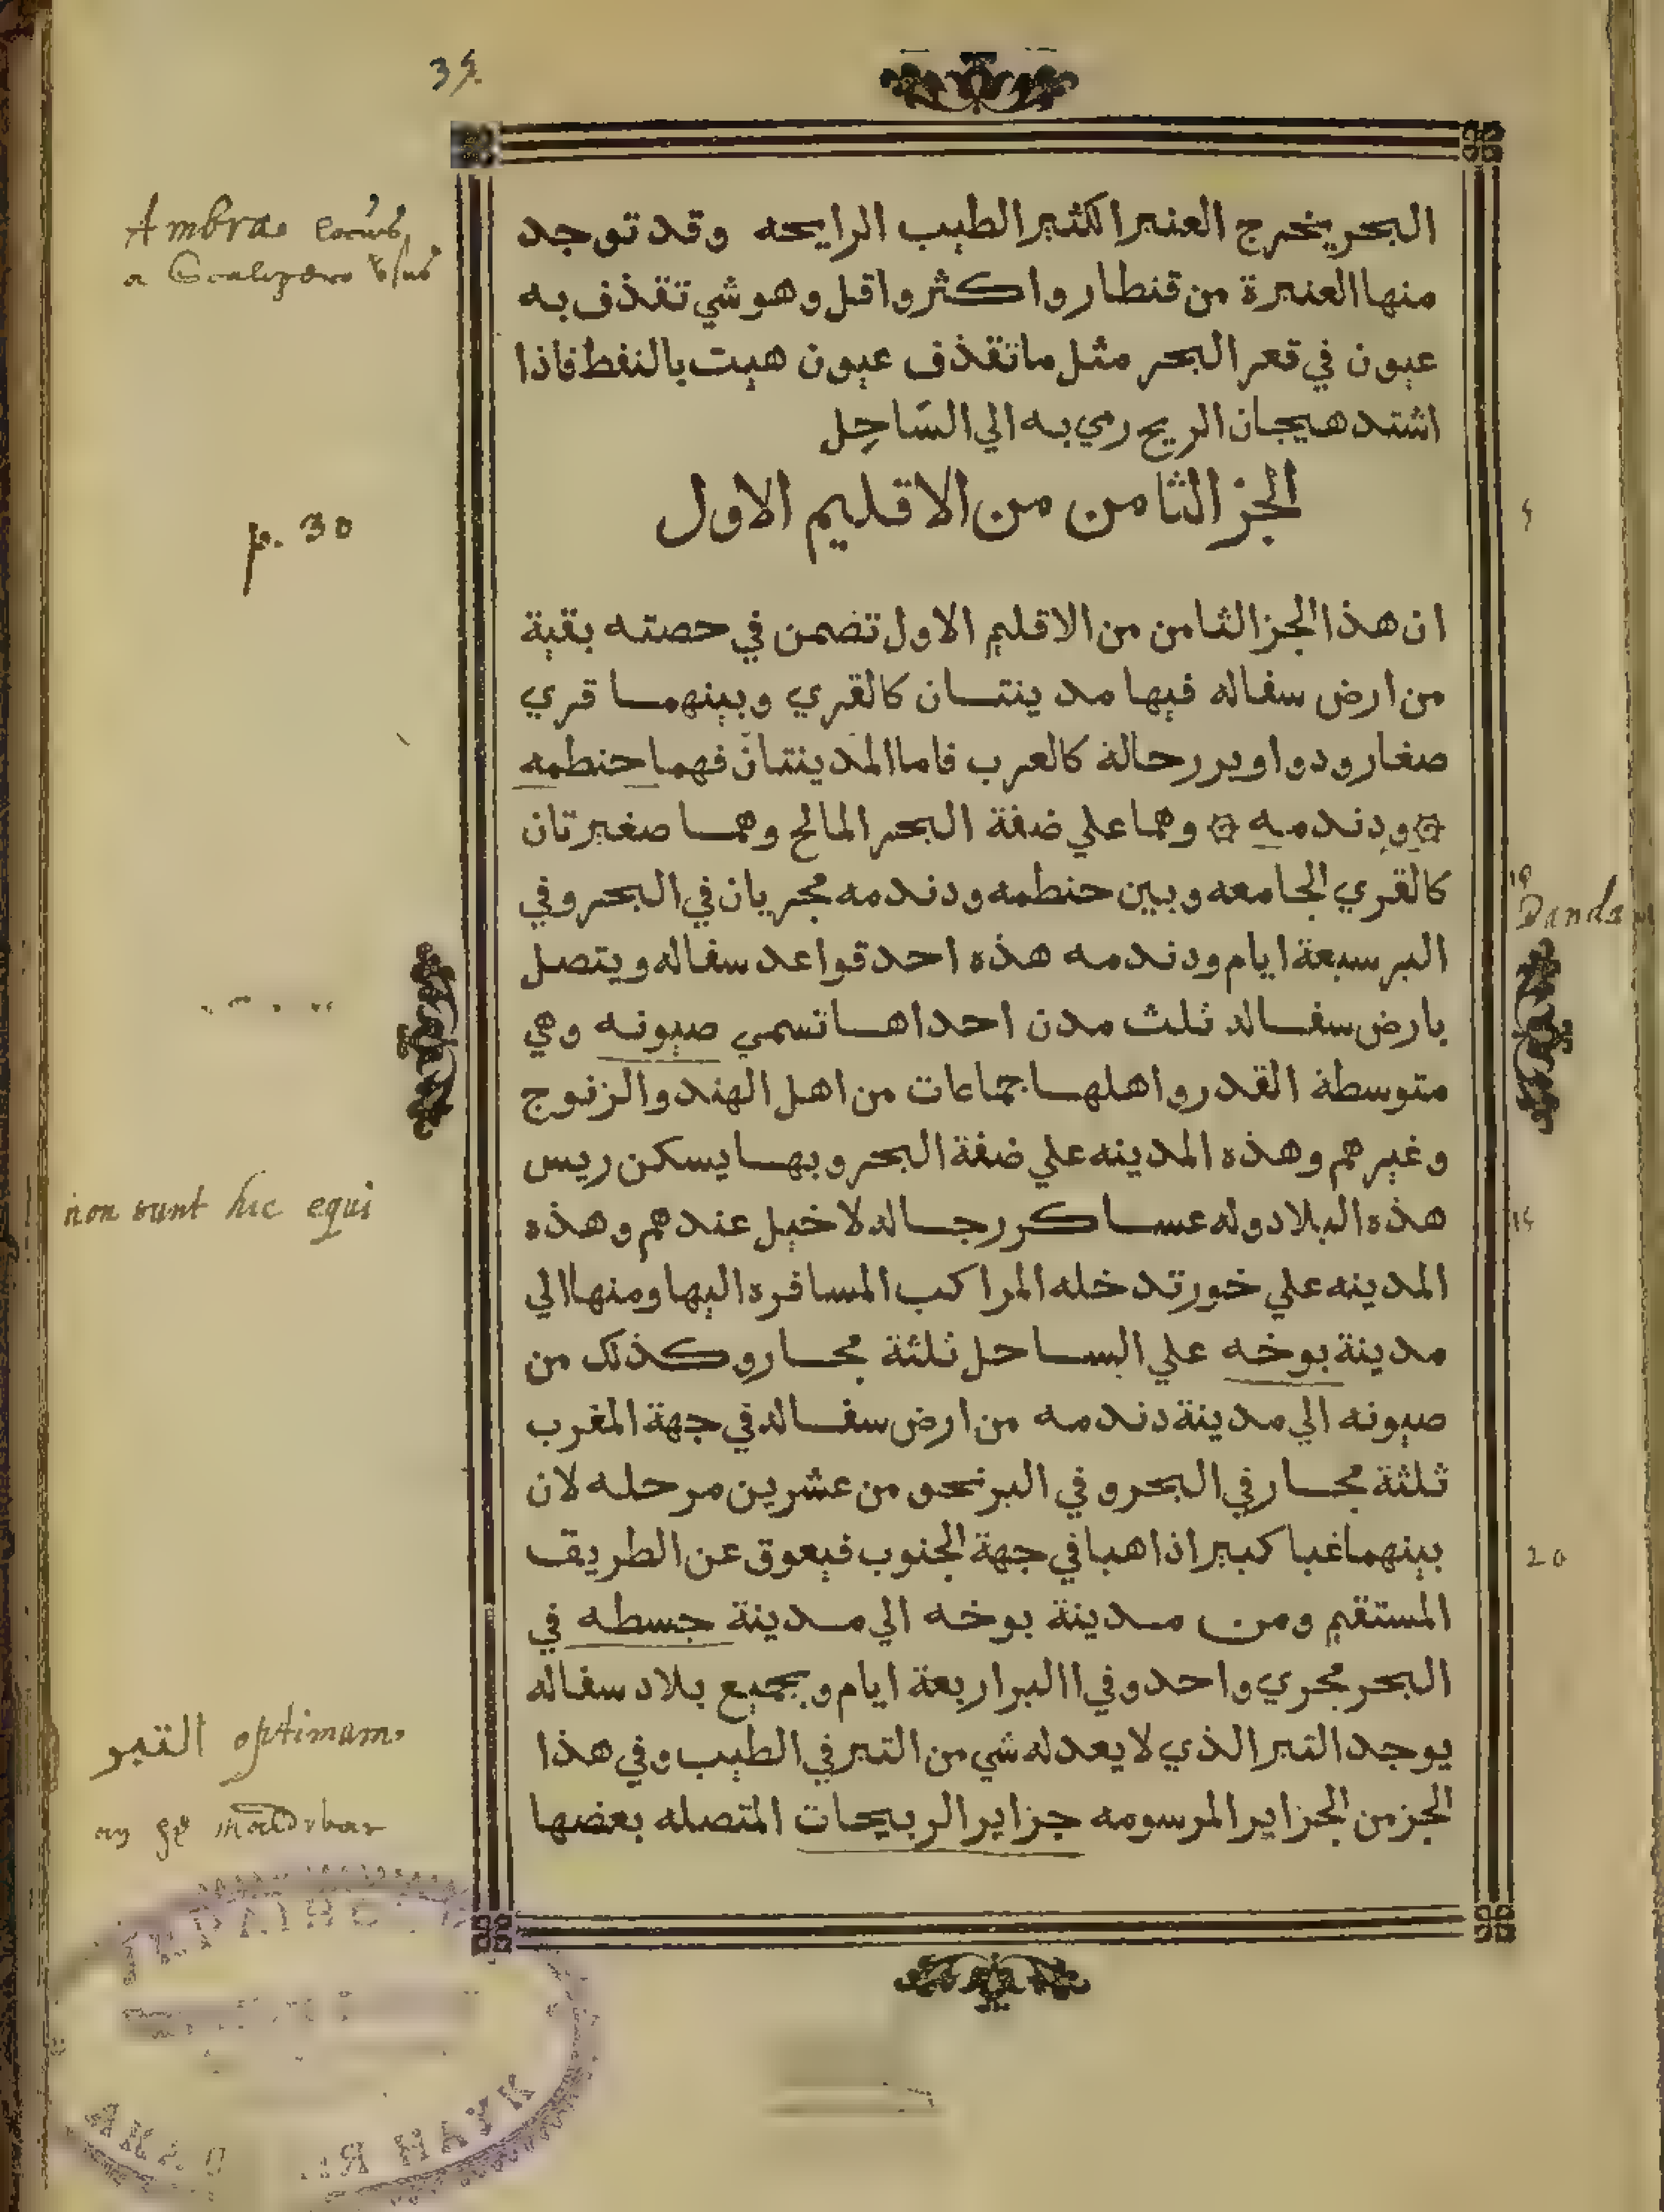 35
البحر يخرج العنبر الكثير الطيب الرايحه وقد توجد
منها العنبرة من قنطار واكثر واقل وهو شي تقذف به
عيون في قعر البحر مثل ما تقذف عيون هيت بالنفط فاذا
اشتد هيجان الريح رمي به الي السَاحِل
الجز الثامن من الاقليم الاول
ان هذا الجز الثامن من الاقليم الاول تضمن في حصته بقية
من ارض سفاله فيها مدينتان كالقري وبينهما قري
صغار ودواوير رحالة كالعرب فاما المدينتان فهما حنطمه
ودندمه وهما علي ضفة البحر المالح وهما صغيرتان
كالقري الجامعه وبين حنطمه ودندمه مجريان في البحر وفي
البر سبعة ايام ودندمه هذه احد قواعد سفاله ويتصل
بارض سفاله ثلث مدن احداها تسمي صيونه وهي
متوسطة القدر واهلها جماعات من اهل الهند والزنوج
وغيرهم وهذه المدينه علي ضفة البحر وبها يسكن ريس
هذه البلاد وله عساكر رجاله لا خيل عندهم وهذه
المدينه علي خور تدخله المراكب المسافره اليها ومنها الي
مدينة بوخه علي الساحل ثلثة مجار وكذلك من
صيونه الي مدينة دندمه من ارض سفاله في جهة المغرب
ثلثة مجار في البحر وفي البر نحو من عشرين مرحله لان
بينهما غبا كبيرا ذاهبا في جهة الجنوب فيعوق عن الطريق
المستقيم ومن مدينة بوخه الي مدينة جسطه في
البحر مجري واحد وفي االبر اربعة ايام وبجميع بلاد سفاله
يوجد التبر الذي لا يعدله شي من التبر في الطيب وفي هذا
الجز من الجزاير المرسومه جزاير الربيحات المتصله بعضها
Ambrae
p. 30
5
10
15
20
non sunt hic equi
التبر optimum